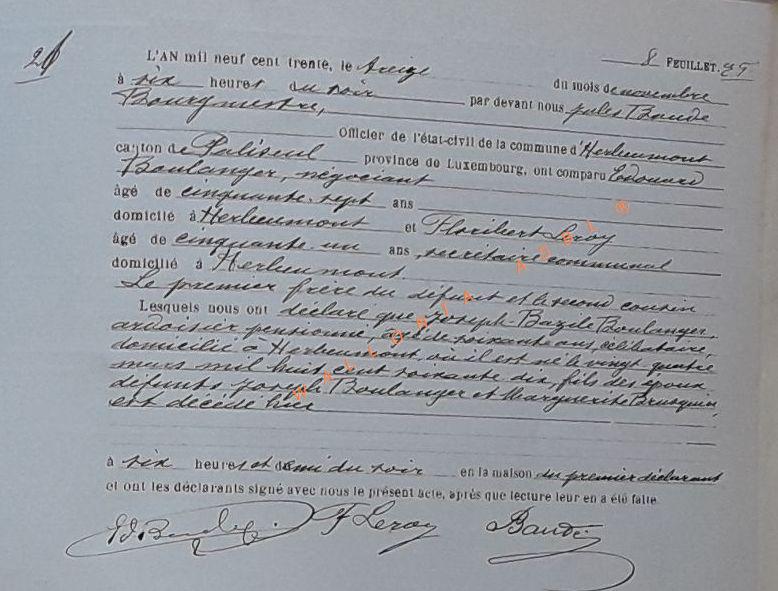 8 FEUILLET.
L'AN mil neuf cent trente, le treize du mois de novembre
à six heures du soir par devant nous Jules Baudé
Bourgmestre,
Officier de l'état-civil de la commune d'Herbeumont
canton de Paliseul province de Luxembourg, ont comparu Edouard
Boulanger, négociant
âgé de cinquante sept ans
domicilié à Herbeumont et Floribert Leroy
âgé de cinquante un ans, secrétaire communal
domicilié à Herbeumont.
Le premier frère du défunt et le second cousin
Lesquels nous ont déclaré que Joseph Bazile Boulanger,
ardoisier pensionné, âgé de soixante ans, célibataire,
domicilié à Herbeumont, où il est né le vingt quatre
mars mil huit cent soixante dix, fils des époux
défunts Joseph Boulanger et Marguerite
est décédé hier
à six heures et demi du soir en la maison du premier déclarant
et ont les déclarants signé avec nous le présent acte, après que lecture leur en a été faite
F Leroy Baudé
WALLONIA ASBL ®